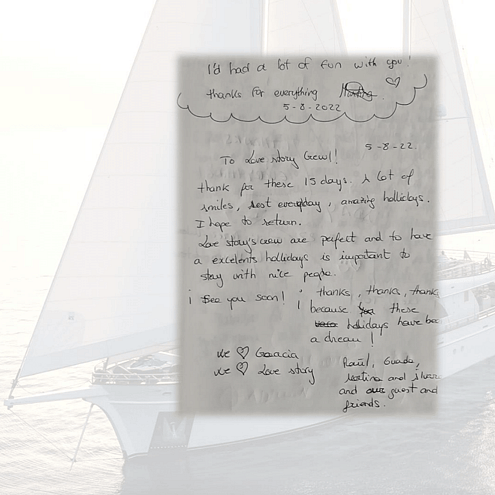 I'd had a lot of fun with you!
thanks for everything
5-8-2022
5-8-22.
To Love story Crew!
thank for these 15 days. A lot of
smiles, rest everyday, amazing hollidays.
I hope to return.
Love story's crew are perfect and to have
a excelents hollidays is important to
stay with nice people.
¡ See you soon! !
thanks, thanks, thanks
because these
hollidays have bee
a dream!
We ♡ Goacia
We ♡ Love story
Raúl, Guada,
and guest and
friends.